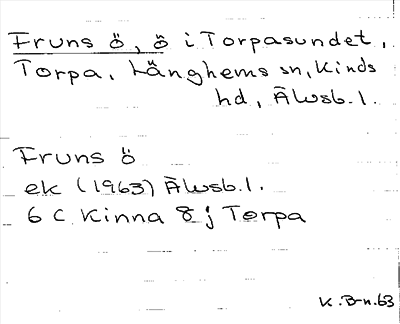 Fruns ö, ö i Torpasundet,
Torpa, Länghems sn, Kinds
hd, Älvsb. l.
Fruns ö
ek (1963) Älvsb. l.
6 C Kinna 8 j Torpa
K. B-n. 63